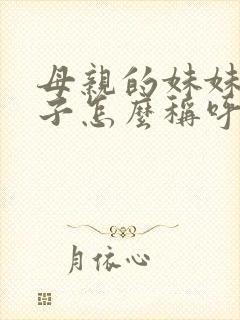 母親的妹妹
子怎麼稱呼
月依心